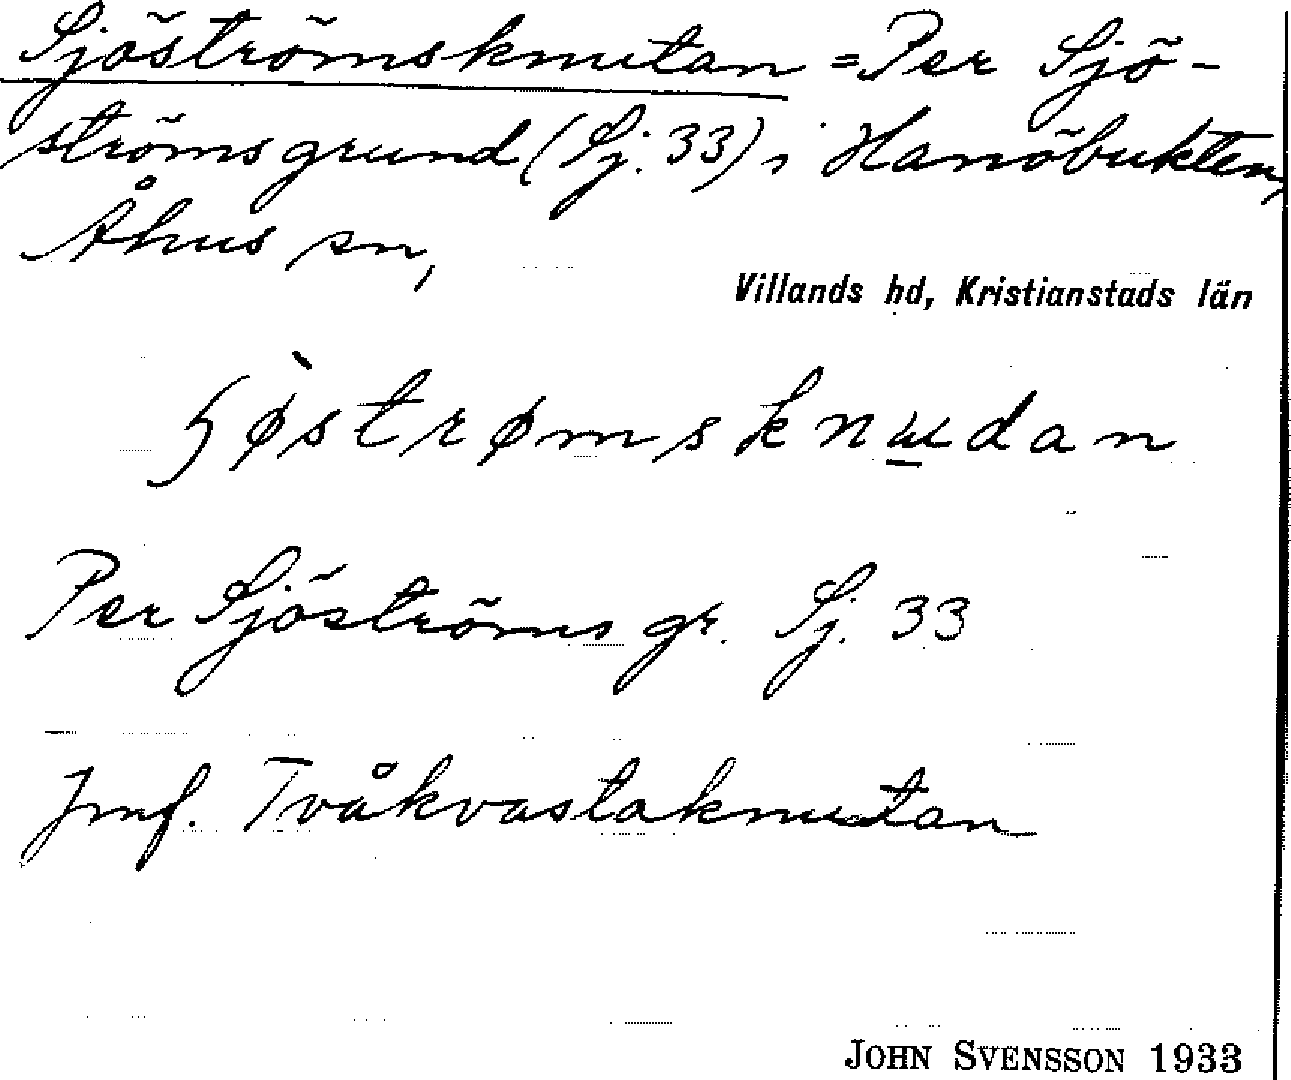 Sjöströmsknutan = Per Sjö-
strömsgrund (Sj. 33) i Hanöbukten,
Åhus sn,
Villands hd, Kristianstads län
ʃø̀strømsknu̲dan
Per Sjöströms gr. Sj. 33
Jmf. Tvåkvastaknutan
JOHN SVENSSON 1933